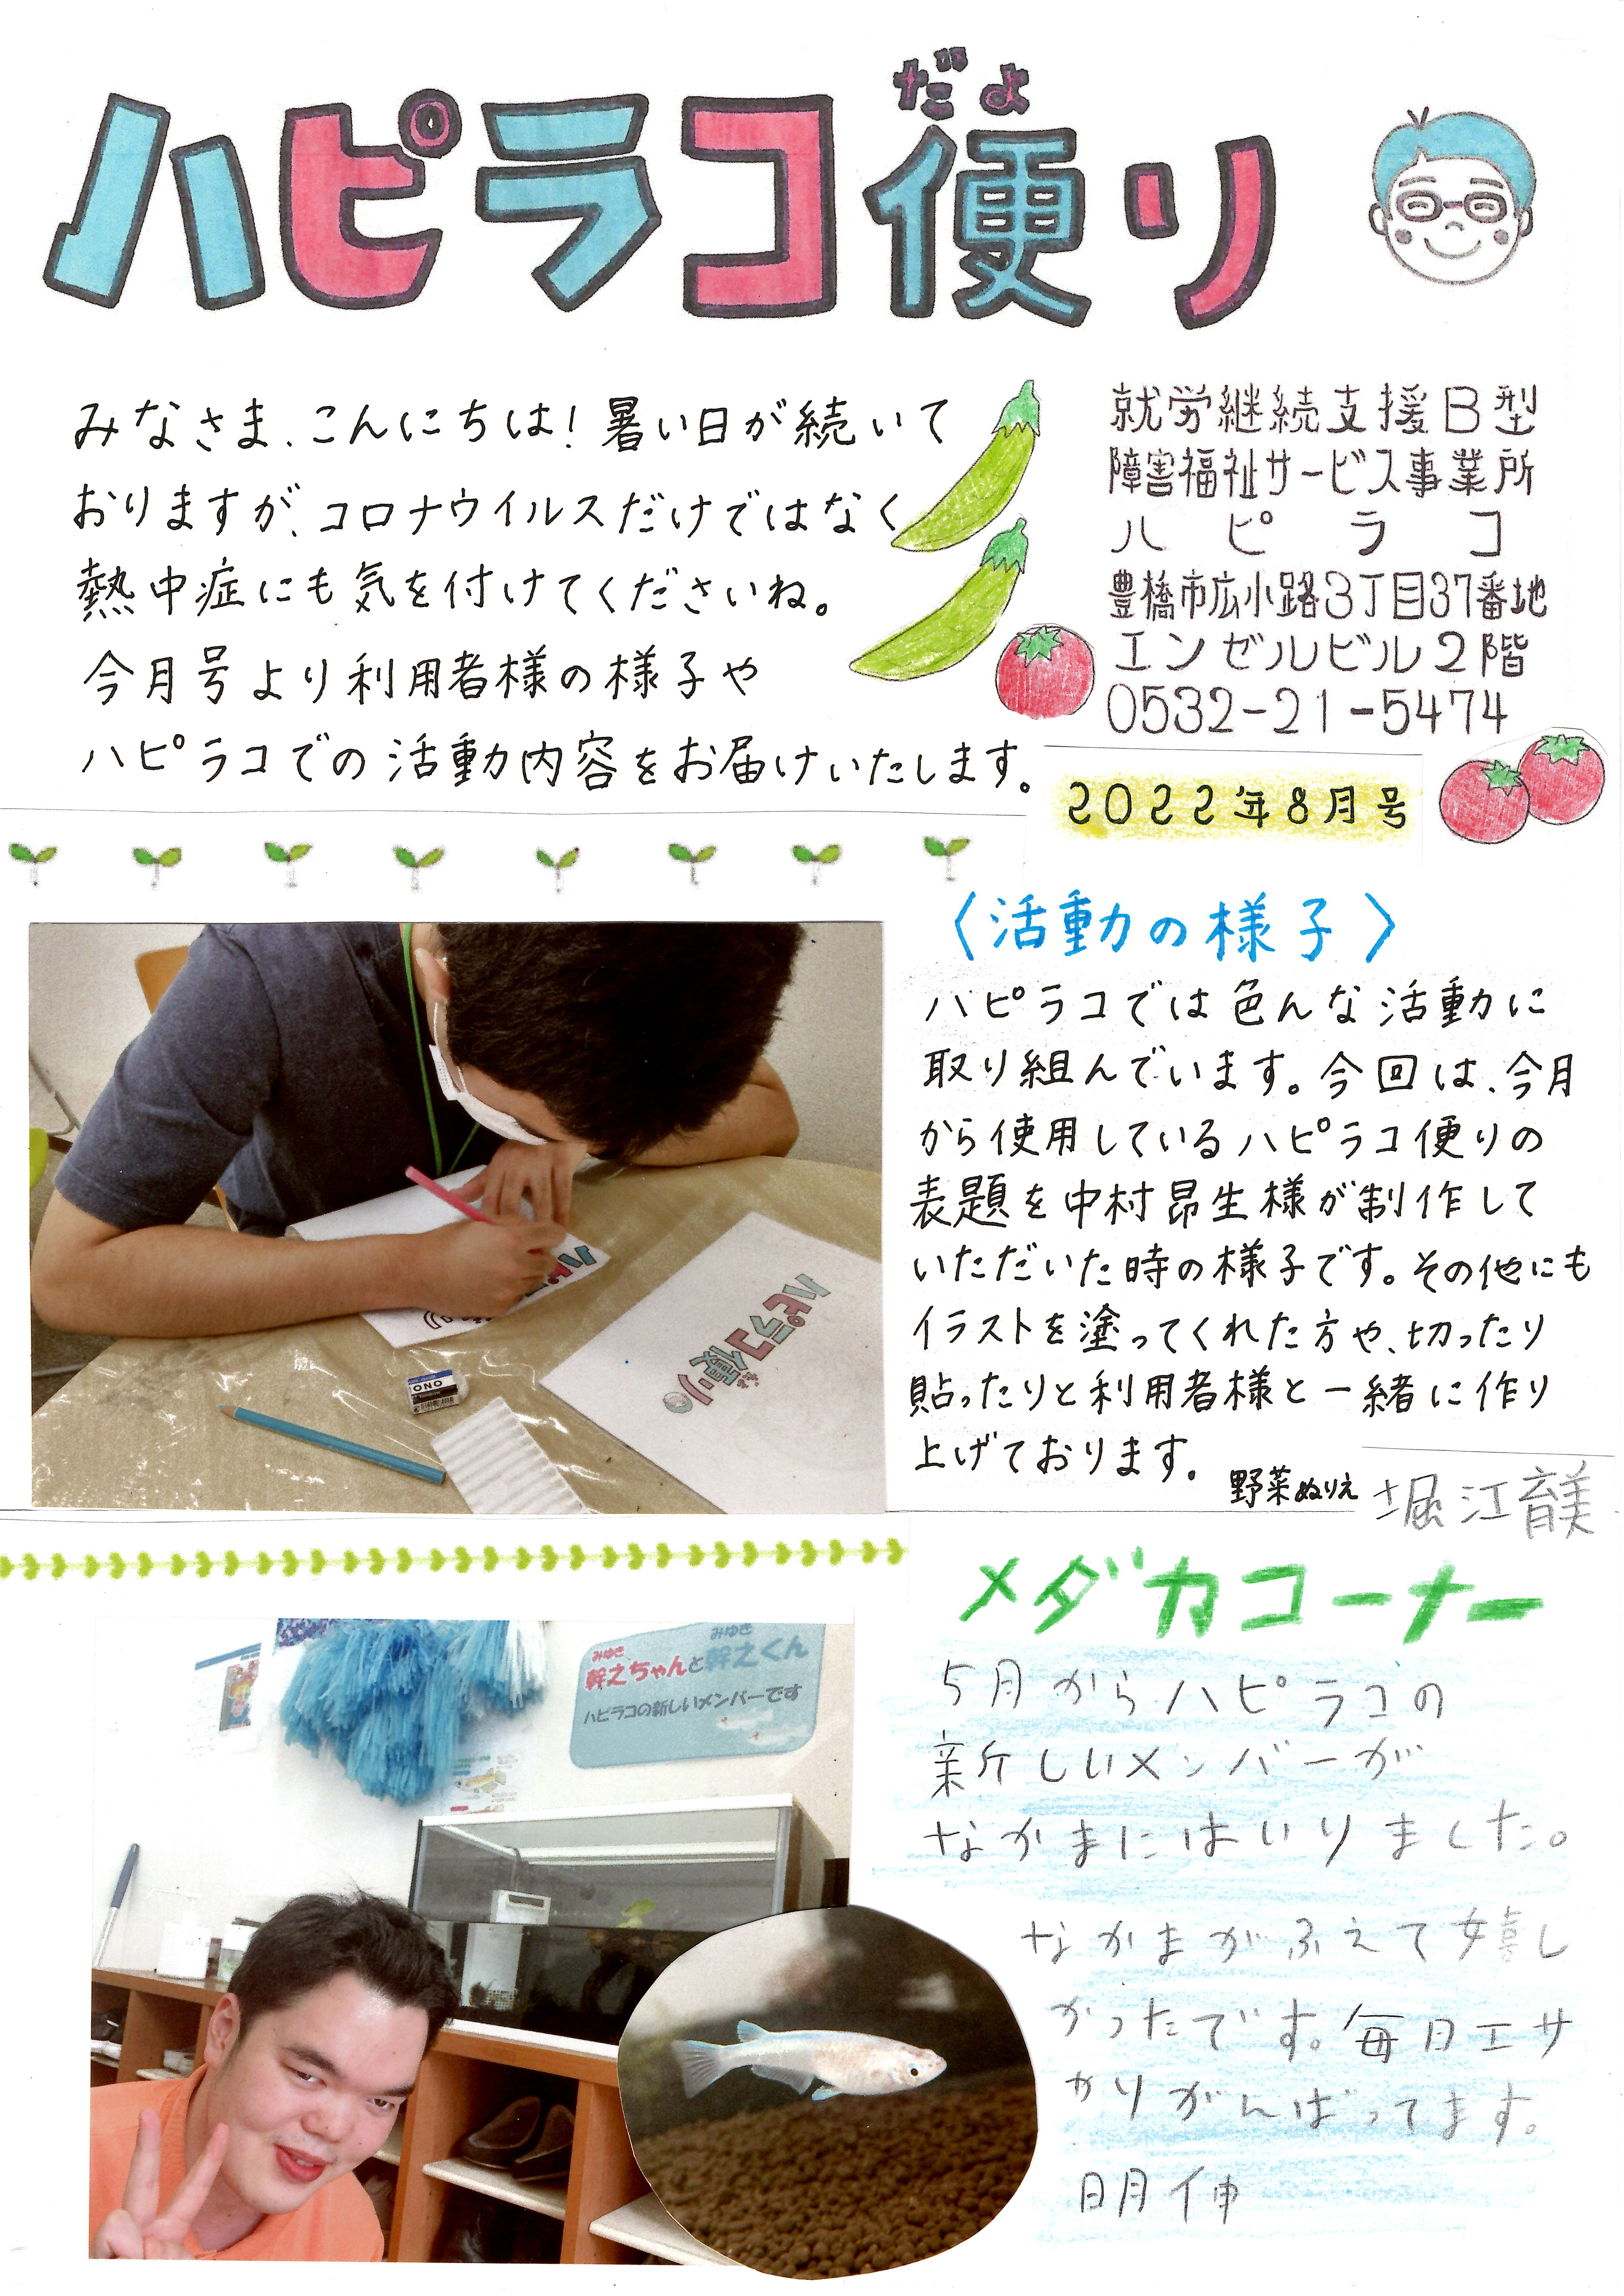 だよ
ハピラコ便り
みなさま、こんにちは！暑い日が続いて
おりますが、コロナウイルスだけではなく
熱中症にも気を付けてくださいね。
今月号より利用者様の様子や
ハピラコでの活動内容をお届けいたします。
就労継続支援B型
障害福祉サービス事業所
ハピラコ
豊橋市広小路3丁目37番地
エンゼルビル2階
0532-21-5474
2022年8月号
〈活動の様子〉
ハピラコでは色んな活動に
取り組んでいます。今回は、今月
から使用しているハピラコ便りの
表題を中村昂生様が制作して
いただいた時の様子です。その他にも
イラストを塗ってくれた方や、切ったり
貼ったりと利用者様と一緒に作り
上げております。
野菜ぬりえ 堀江育美
ハピラコ便り
だよ
ONO
メダカコーナー
5月からハピラコの
新しいメンバーが
なかまにはいりました。
なかまがふえて嬉し
かったです。毎日エサ
やりがんばってます。
明伸
みゆき みゆき
幹之ちゃんと幹之くん
ハピラコの新しいメンバーです